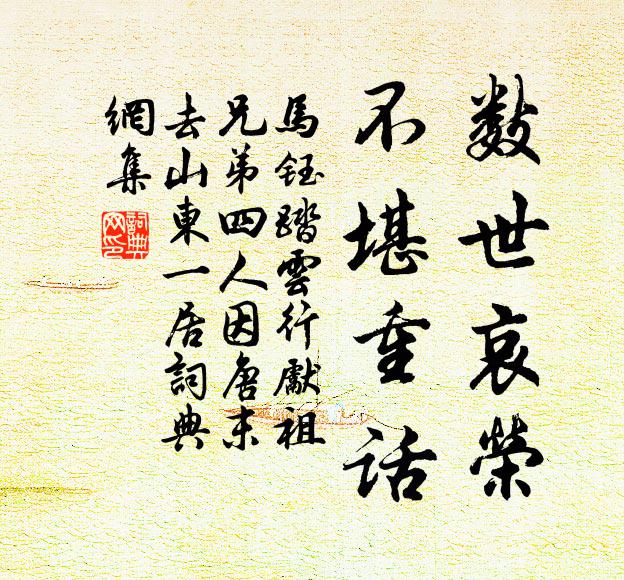 数世哀榮
不堪重話
馬鈺踏雲行勵祖
兄弟四人因唐末
去山東一居詞典
網集
詞典
网印